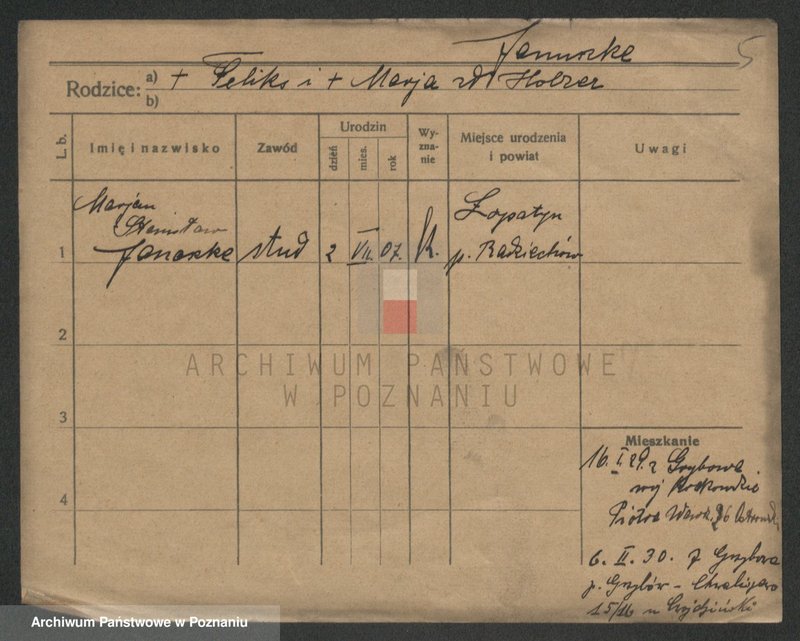 5
Rodzice: a) + Feliks i + Marja zd Holzer
b)
L. b.
Imię i nazwisko
Zawód
Urodzin
dzień
mies.
rok
Wy-
zna-
nie
Miejsce urodzenia
i powiat
Uwagi
Marjan
Stanisław
1 stud 2 VII. 07. Łopatyn
p. Radziechów
2
ARCHIWUM PAŃSTWOWE
W POZNANIU
3
Mieszkanie
16. I. 29. z Grybowa
woj Krakowskie
4 Piotra Wawrz. 26
6. II. 30. z Grybowa
p. Grybów –
15/16 u
Archiwum Państwowe w Poznaniu